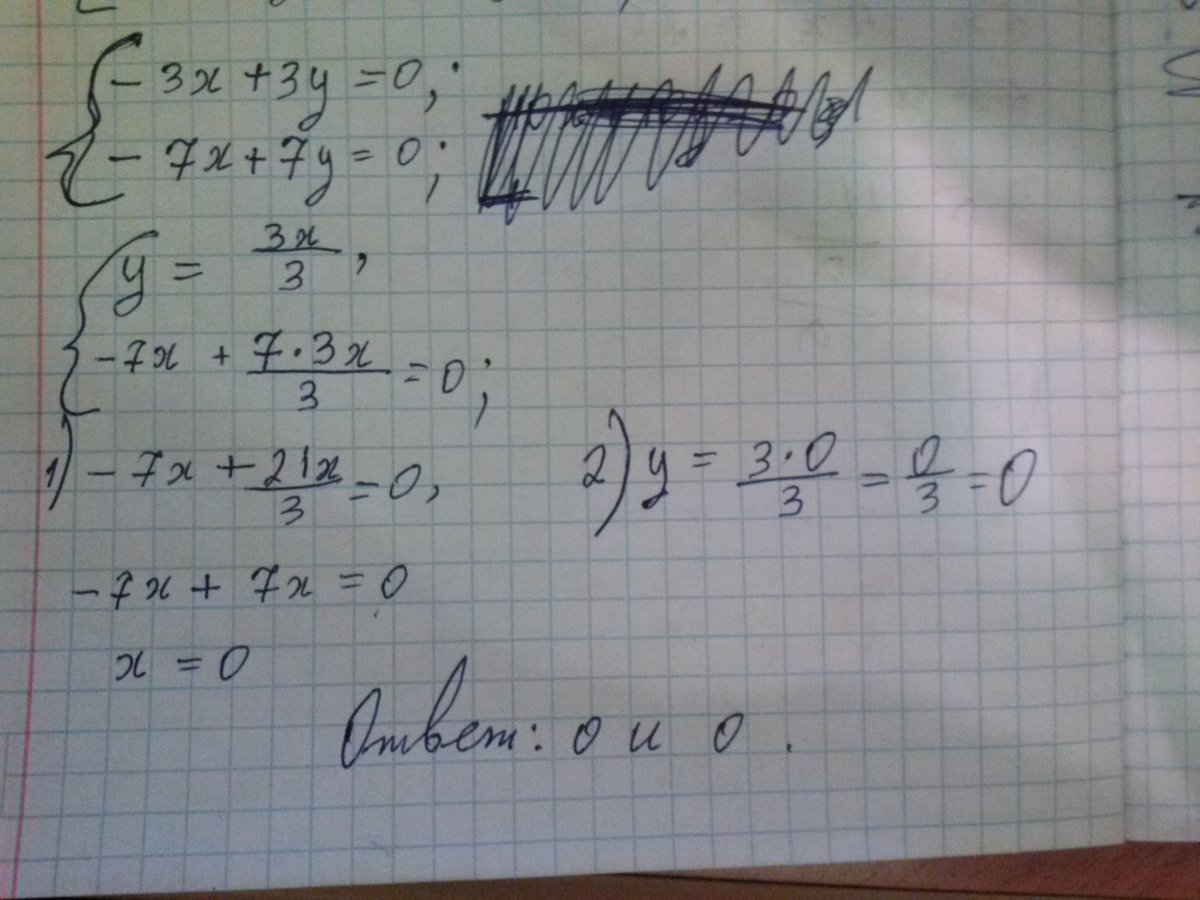 - 3x + 3y = 0;
- 7x + 7y = 0;
y = 3x/3,
-7x + 7·3x/3 = 0;
1) - 7x + 21x/3 = 0,
-7x + 7x = 0
x = 0
2) y = 3·0/3 = 0/3 = 0
Ответ: 0 и 0.